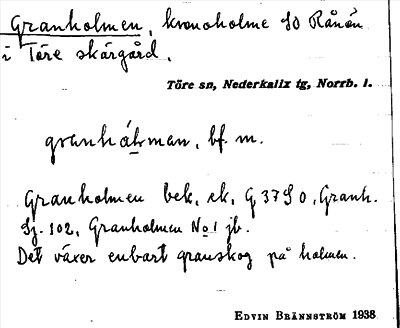 Granholmen, kronoholme SO Rånön
i Töre skärgård.
Töre sn, Nederkalix tg, Norrb. l.
granhålman, bf. m.
Granholmen bek. ek. G 37 SO, Granh.
Sj. 102, Granholmen No 1 jb.
Det växer enbart granskog på holmen.
EDVIN BRÄNNSTRÖM 1938